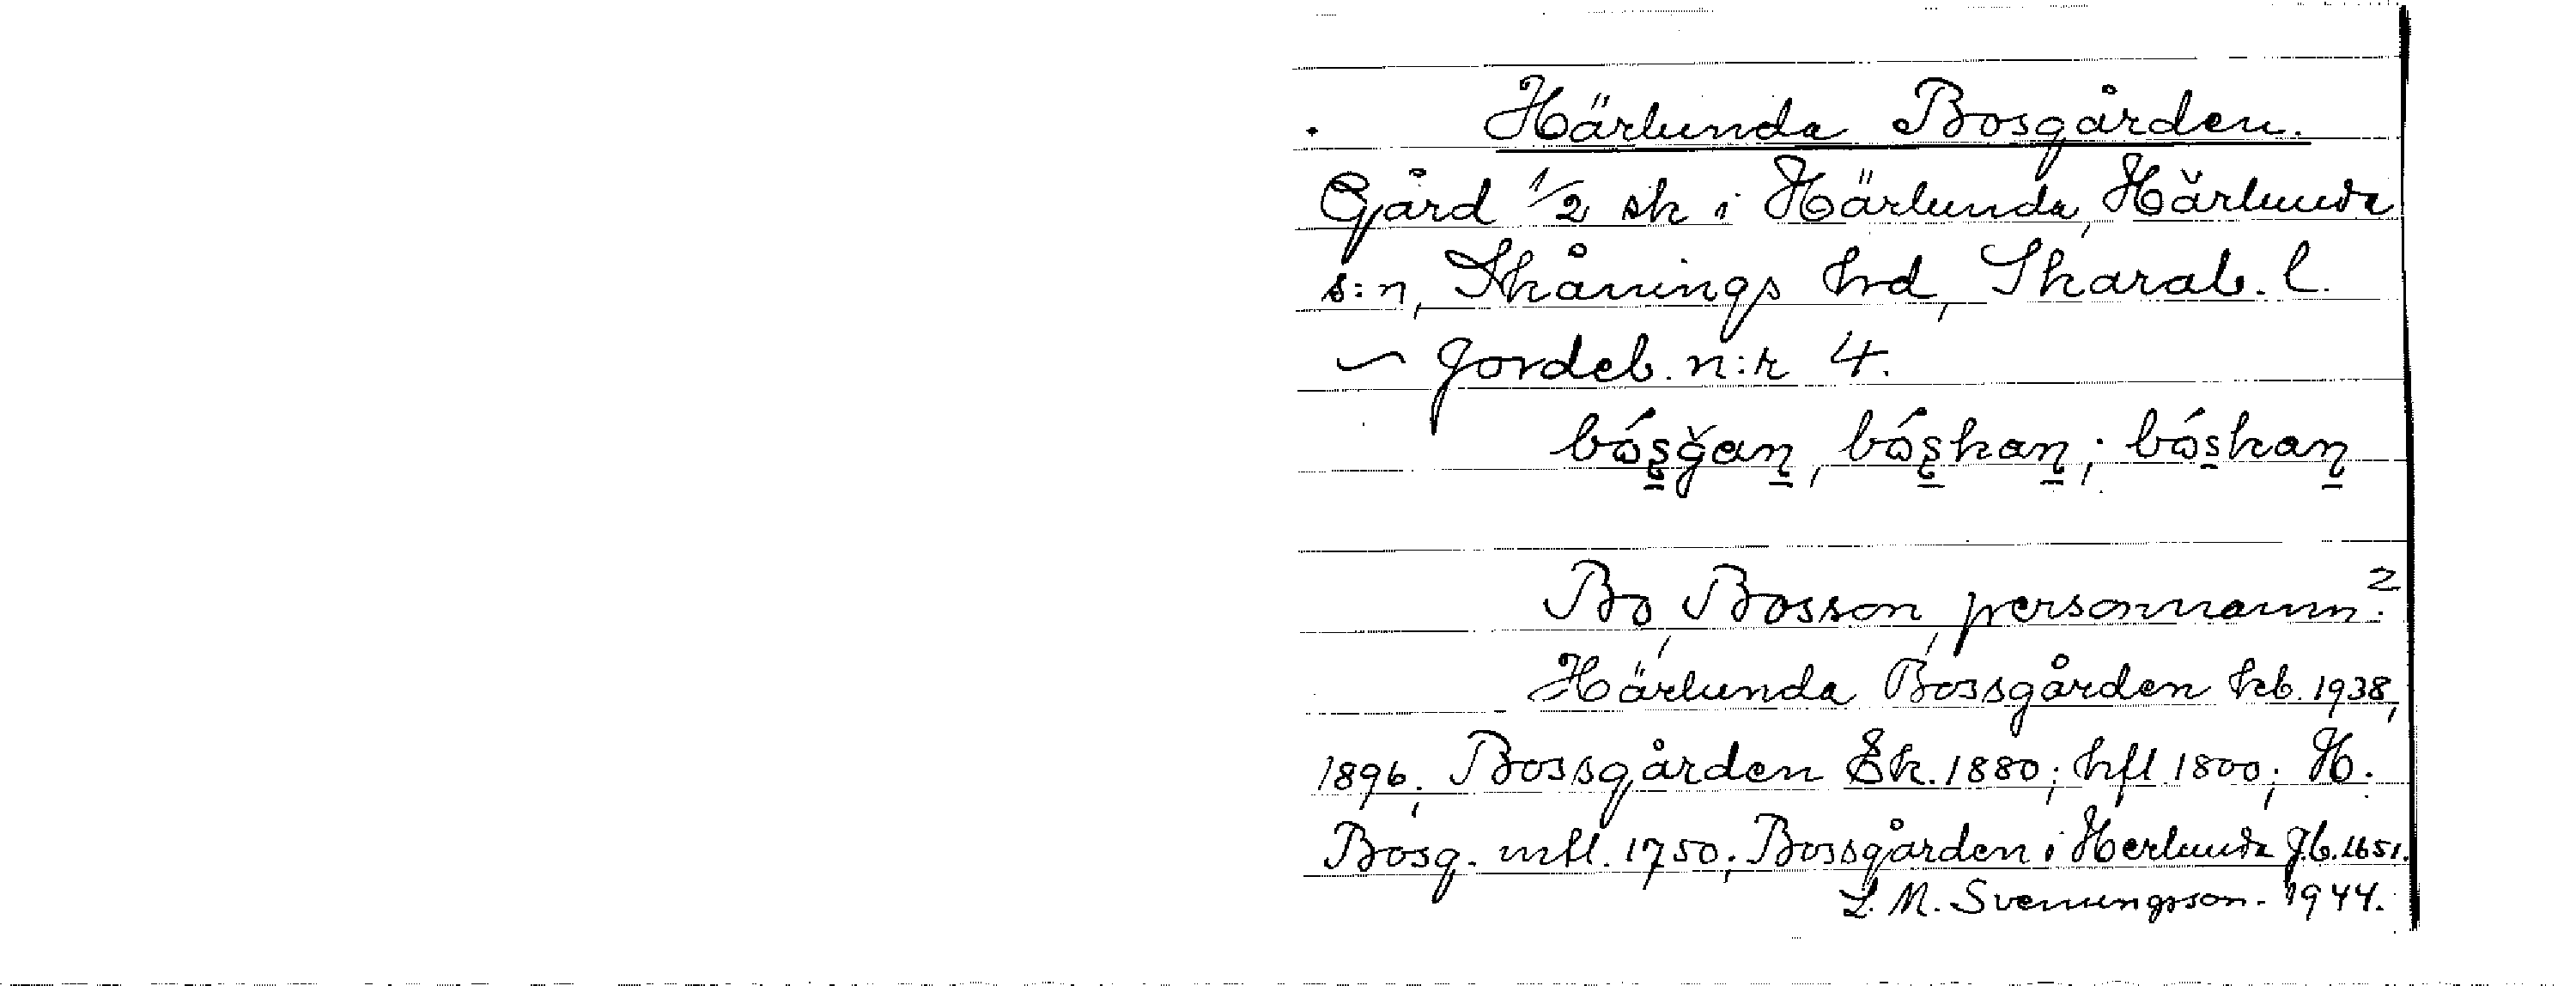 Härlunda Bosgården.
Gård 1/2 sk i Härlunda, Härlunda
s:n, Skånings hrd, Skarab. l.
~ Jordeb. n:r 4.
bós̱ğaṉ, bós̱kaṉ; bós̱kaṉ
Bo, Bosson, personnamn?
Härlunda Bossgården kb. 1938,
1896; Bossgården Ek. 1880; hfl 1800; H.
Bosg. mtl. 1750; Bossgården i Herlunda Jb. 1651.
L. M. Svenungsson. 1944.